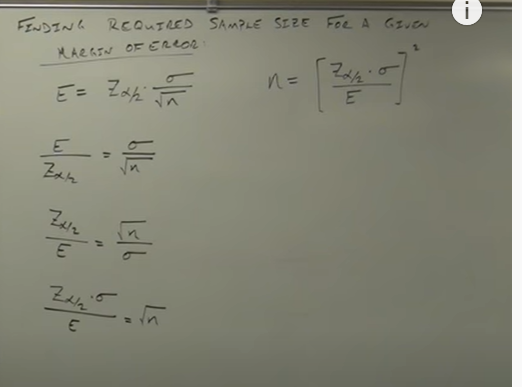 FINDING REQUIRED SAMPLE SIZE FOR A GIVEN
MARGIN OF ERROR:
E = Zα/2 · σ/√n
n = [Zα/2 · σ / E]²
E/Zα/2 = σ/√n
Zα/2/E = √n/σ
Zα/2 · σ/E = √n
i